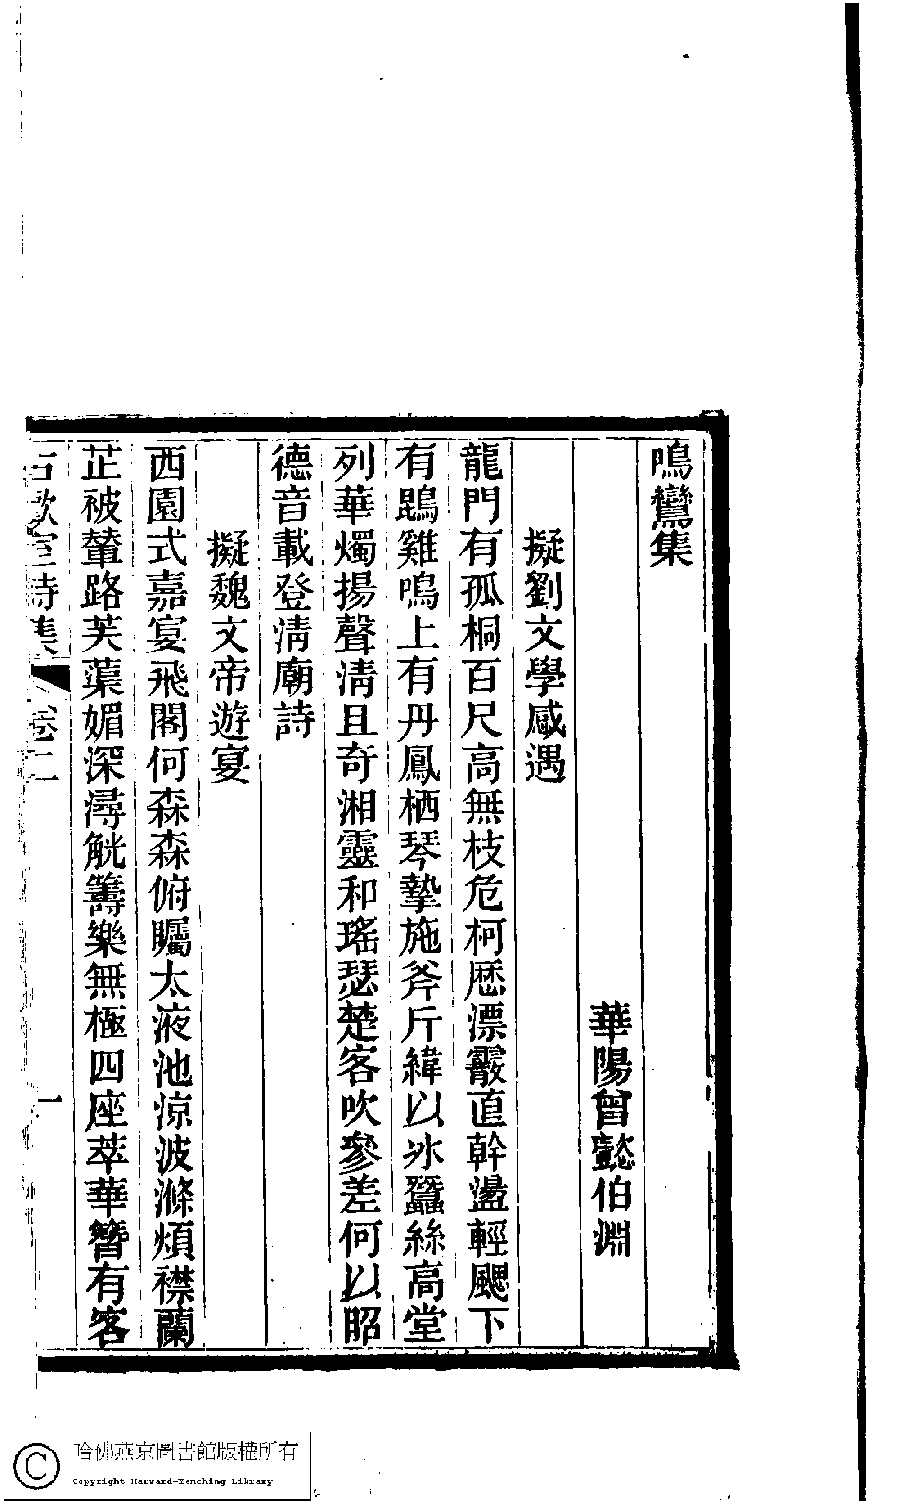 鳴鸞集
華陽曾懿伯淵
擬劉文學感遇
龍門有孤桐百尺高無枝危柯歷漂霰直幹盪輕颸下
有鵾雞鳴上有丹鳳栖琴摯施斧斤緯以冰蠶絲高堂
列華燭揚聲淸且奇湘靈和瑤瑟楚客吹參差何以昭
德音載登淸廟詩
擬魏文帝遊宴
西園式嘉宴飛閣何森森俯矚太液池涼波滌煩襟蘭
芷被輦路芙蕖媚深潯觥籌樂無極四座萃華簪有客
古歡室詩集 卷二 一
哈佛燕京圖書館版權所有
Copyright Harvard-Yenching Library